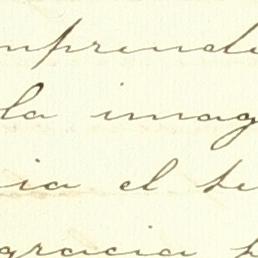 mprende
la imag
ia el te
gracia